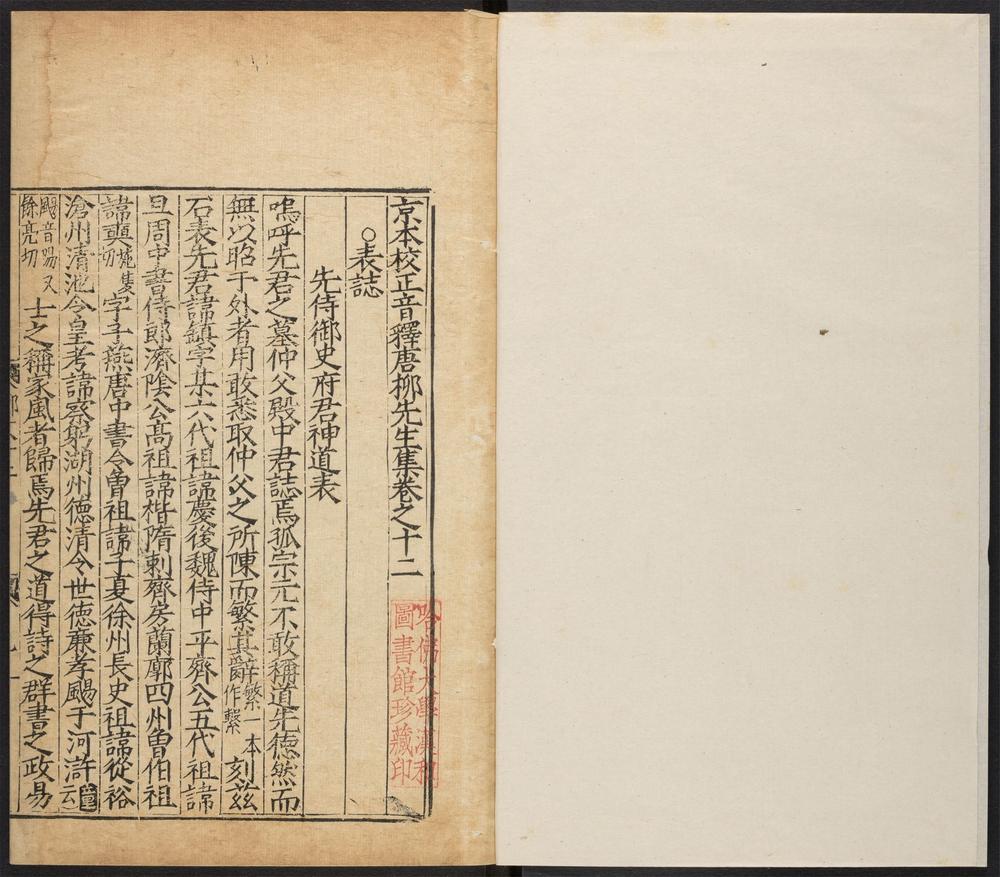 京本校正音釋唐柳先生集卷之十二
○表誌
先侍御史府君神道表
嗚呼先君之墓仲父殿中君誌焉孤宗元不敢稱道先德然而
無以昭于外者用敢悉取仲父之所陳而繁其辭繁一本作繫刻茲
石表先君諱鎮字某六代祖諱慶後魏侍中平齊公五代祖諱
旦周中書侍郎濟陰公高祖諱楷隋刺齊房蘭廓四州曾伯祖
諱奭切字子燕唐中書令曾祖諱子夏徐州長史祖諱從裕
滄州清池令皇考諱察躬湖州德清令世德廉孝颺于河滸童云
颺音昜又餘亮切士之稱家風者歸焉先君之道得詩之群書之政易
哈佛大學漢和
圖書館珍藏印